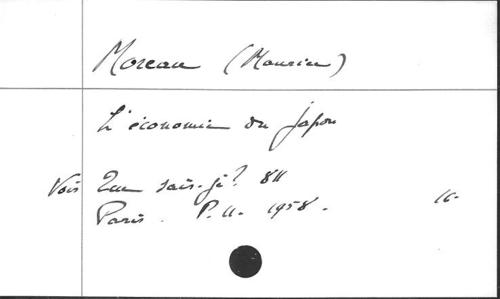 Moreau (Maurice)
L'économie du Japon
Voir Que sais-je? 811
Paris. P.U. 1958. 16.